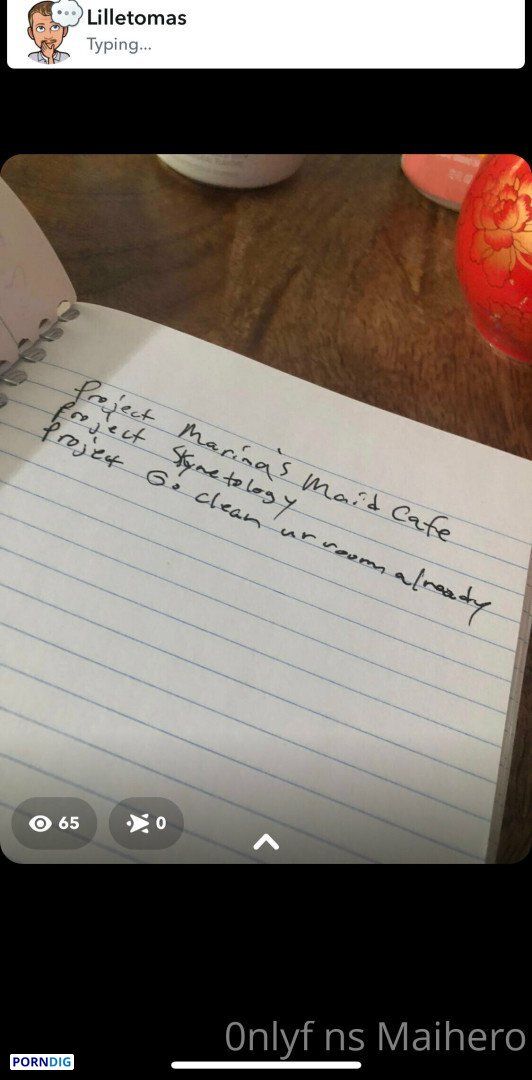 Lilletomas
Typing...
Project Marina's Maid Cafe
Project Skynetology
Project Go clean ur room already
65
0
0nlyf ns Maihero
PORNDIG